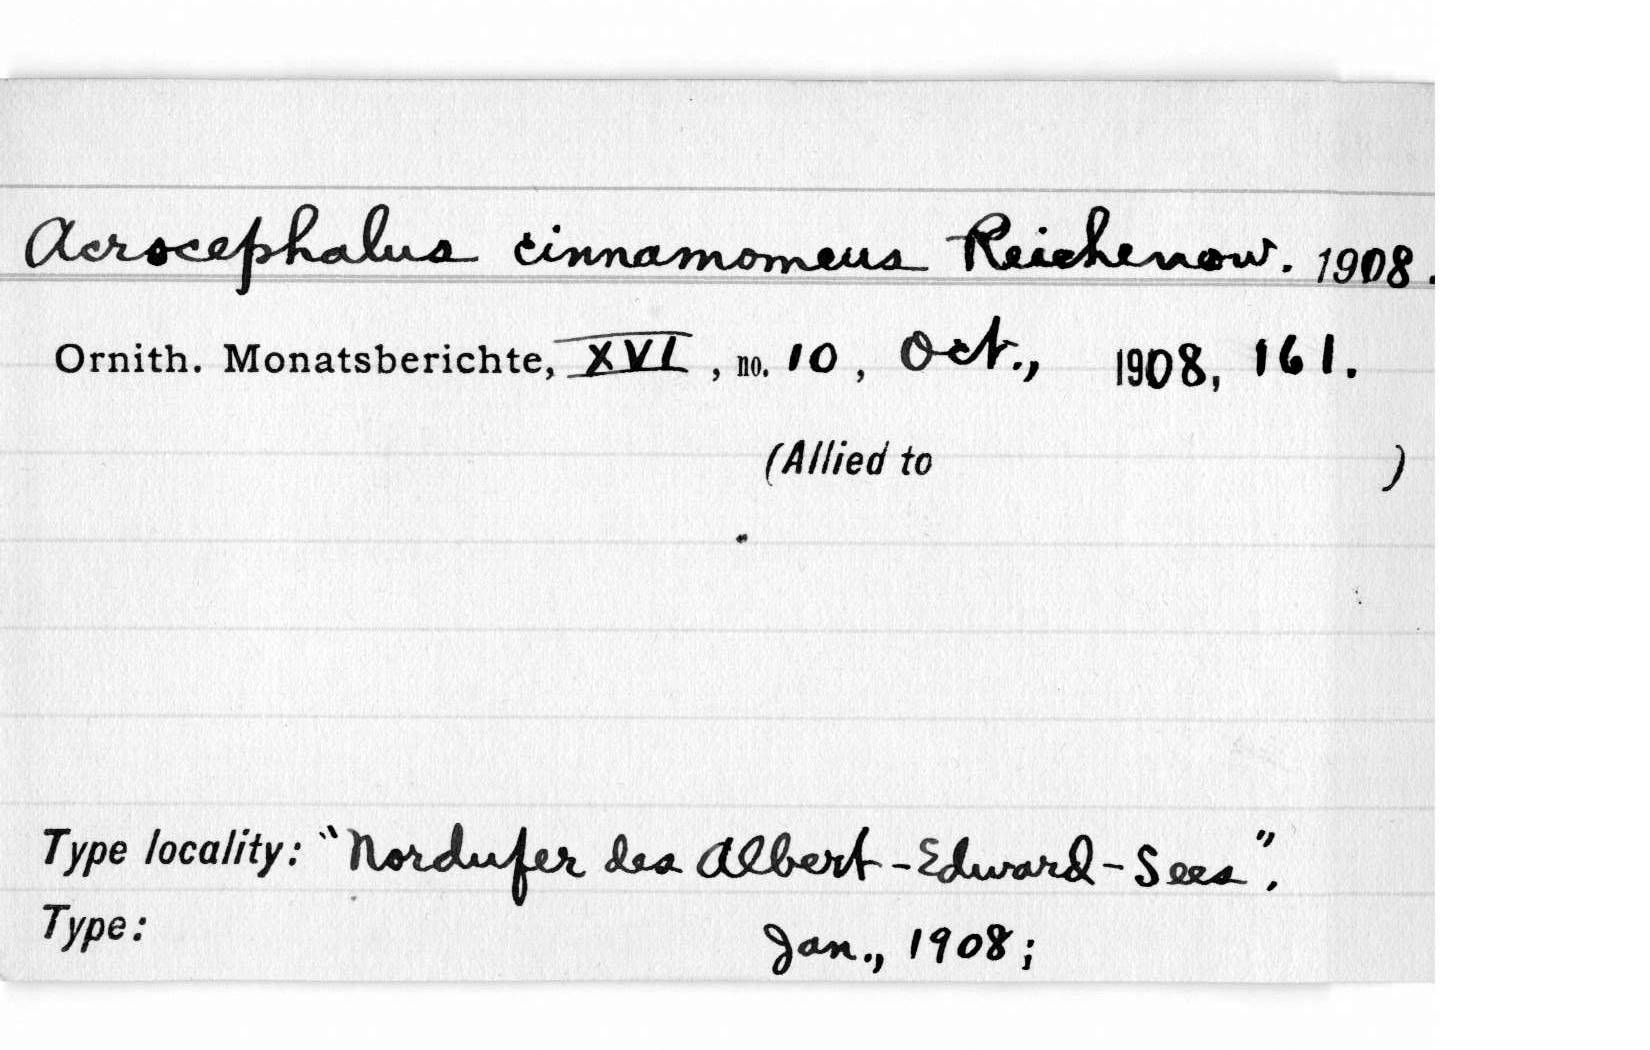 Acrocephalus cinnamomeus Reichenow. 1908.
Ornith. Monatsberichte, XVI, no. 10, Oct., 1908, 161.
(Allied to )
Type locality: "Nordufer des Albert-Edward-Sees",
Type: Jan., 1908;